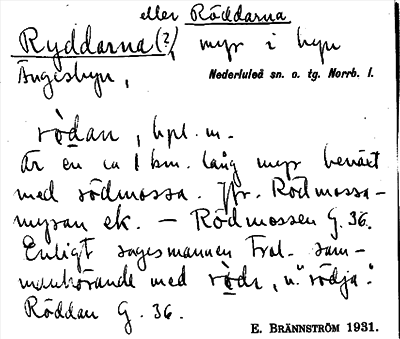 eller Röddarna
Ryddarna (?), myr i byn
Ängesbyn,
Nederluleå sn. o. tg. Norrb. l.
rödan, bpl. m.
Är en ca 1 km. lång myr beväxt
med rödmossa. Jfr. Rödmossa-
myran ek. – Rödmossen G. 36.
Enligt sagesmannen trol. sam-
manhörande med röde, n. "rödja".
Röddan G. 36.
E. BRÄNNSTRÖM 1931.